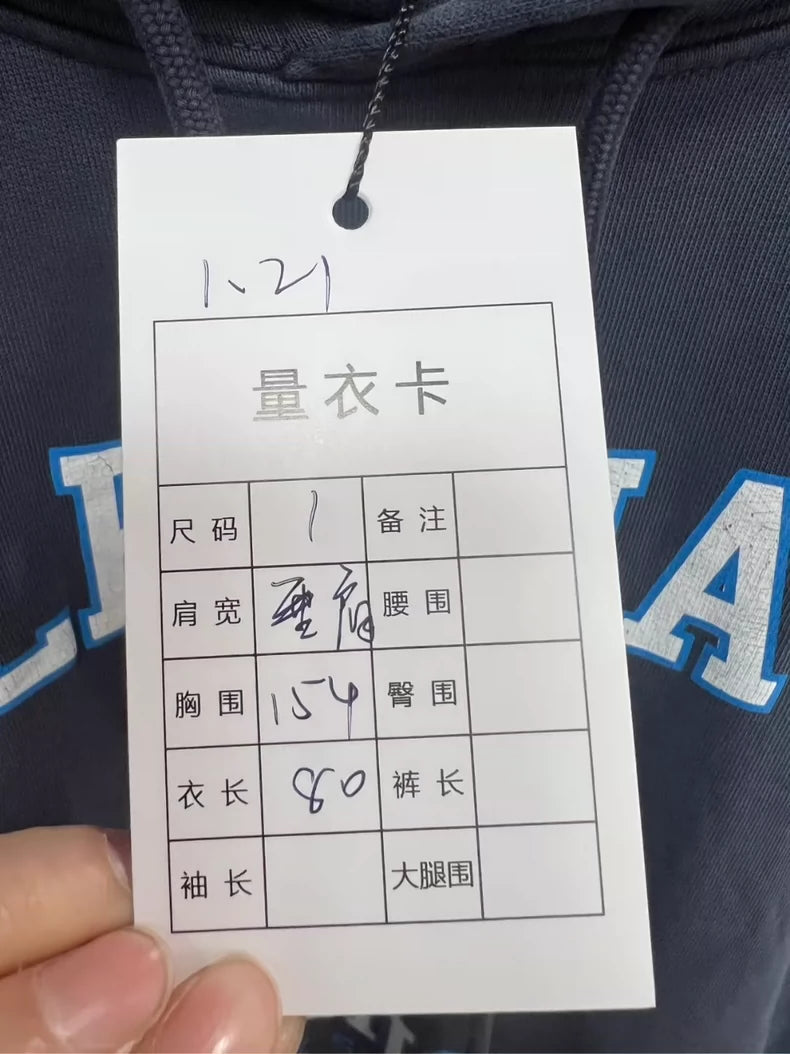 1.21
量衣卡
尺码 1 备注
肩宽 垂肩 腰围
胸围 154 臀围
衣长 80 裤长
袖长 大腿围
A